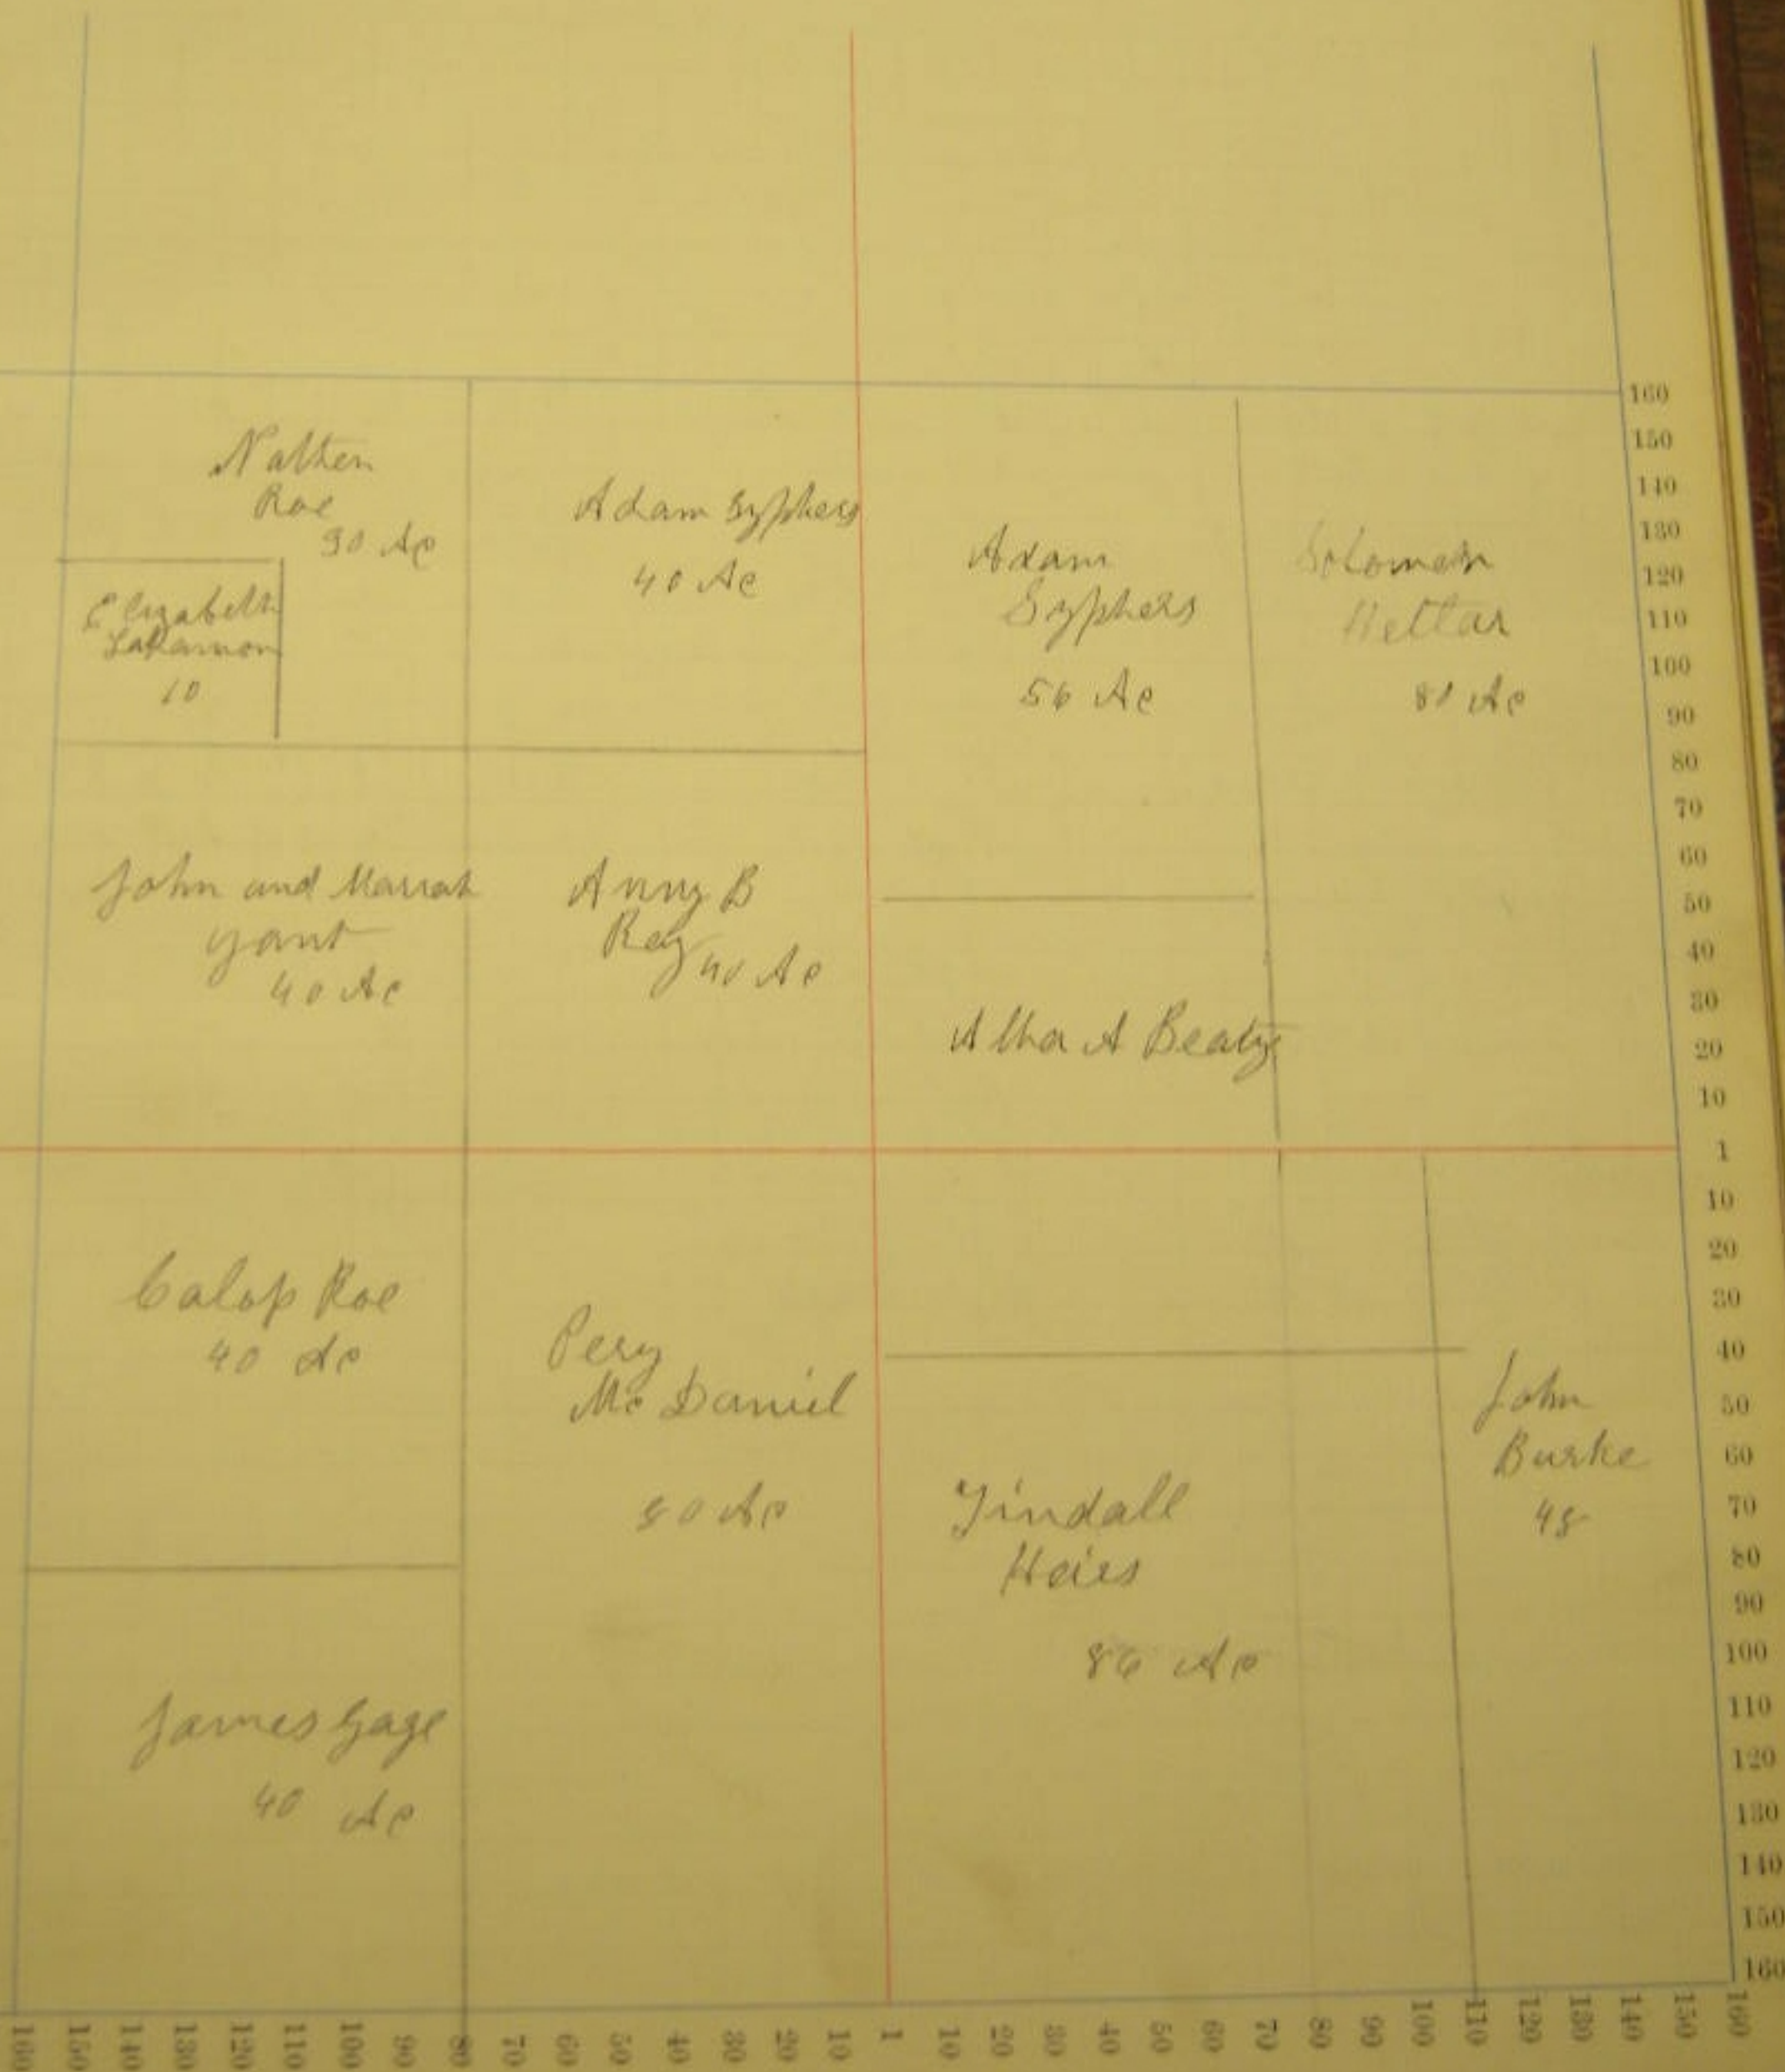 Nathen
Roe
30 Ac
Elizabeth
10
Adam Syphers
40 Ac
Adam
Syphers
56 Ac
Solomon
Hettar
80 Ac
John and Marrah
Yant
40 Ac
Anny B
Ray 40 Ac
Alha A Beaty
Calop Roe
40 Ac
Pery
Mc Daniel
80 Ac
Tindall
Heies
86 Ac
John
Burke
48
James Gage
40 Ac
160
150
140
130
120
110
100
90
80
70
60
50
40
30
20
10
1
10
20
30
40
50
60
70
80
90
100
110
120
130
140
150
160
160 150 140 130 120 110 100 90 80 70 60 50 40 30 20 10 1 10 20 30 40 50 60 70 80 90 100 110 120 130 140 150 160